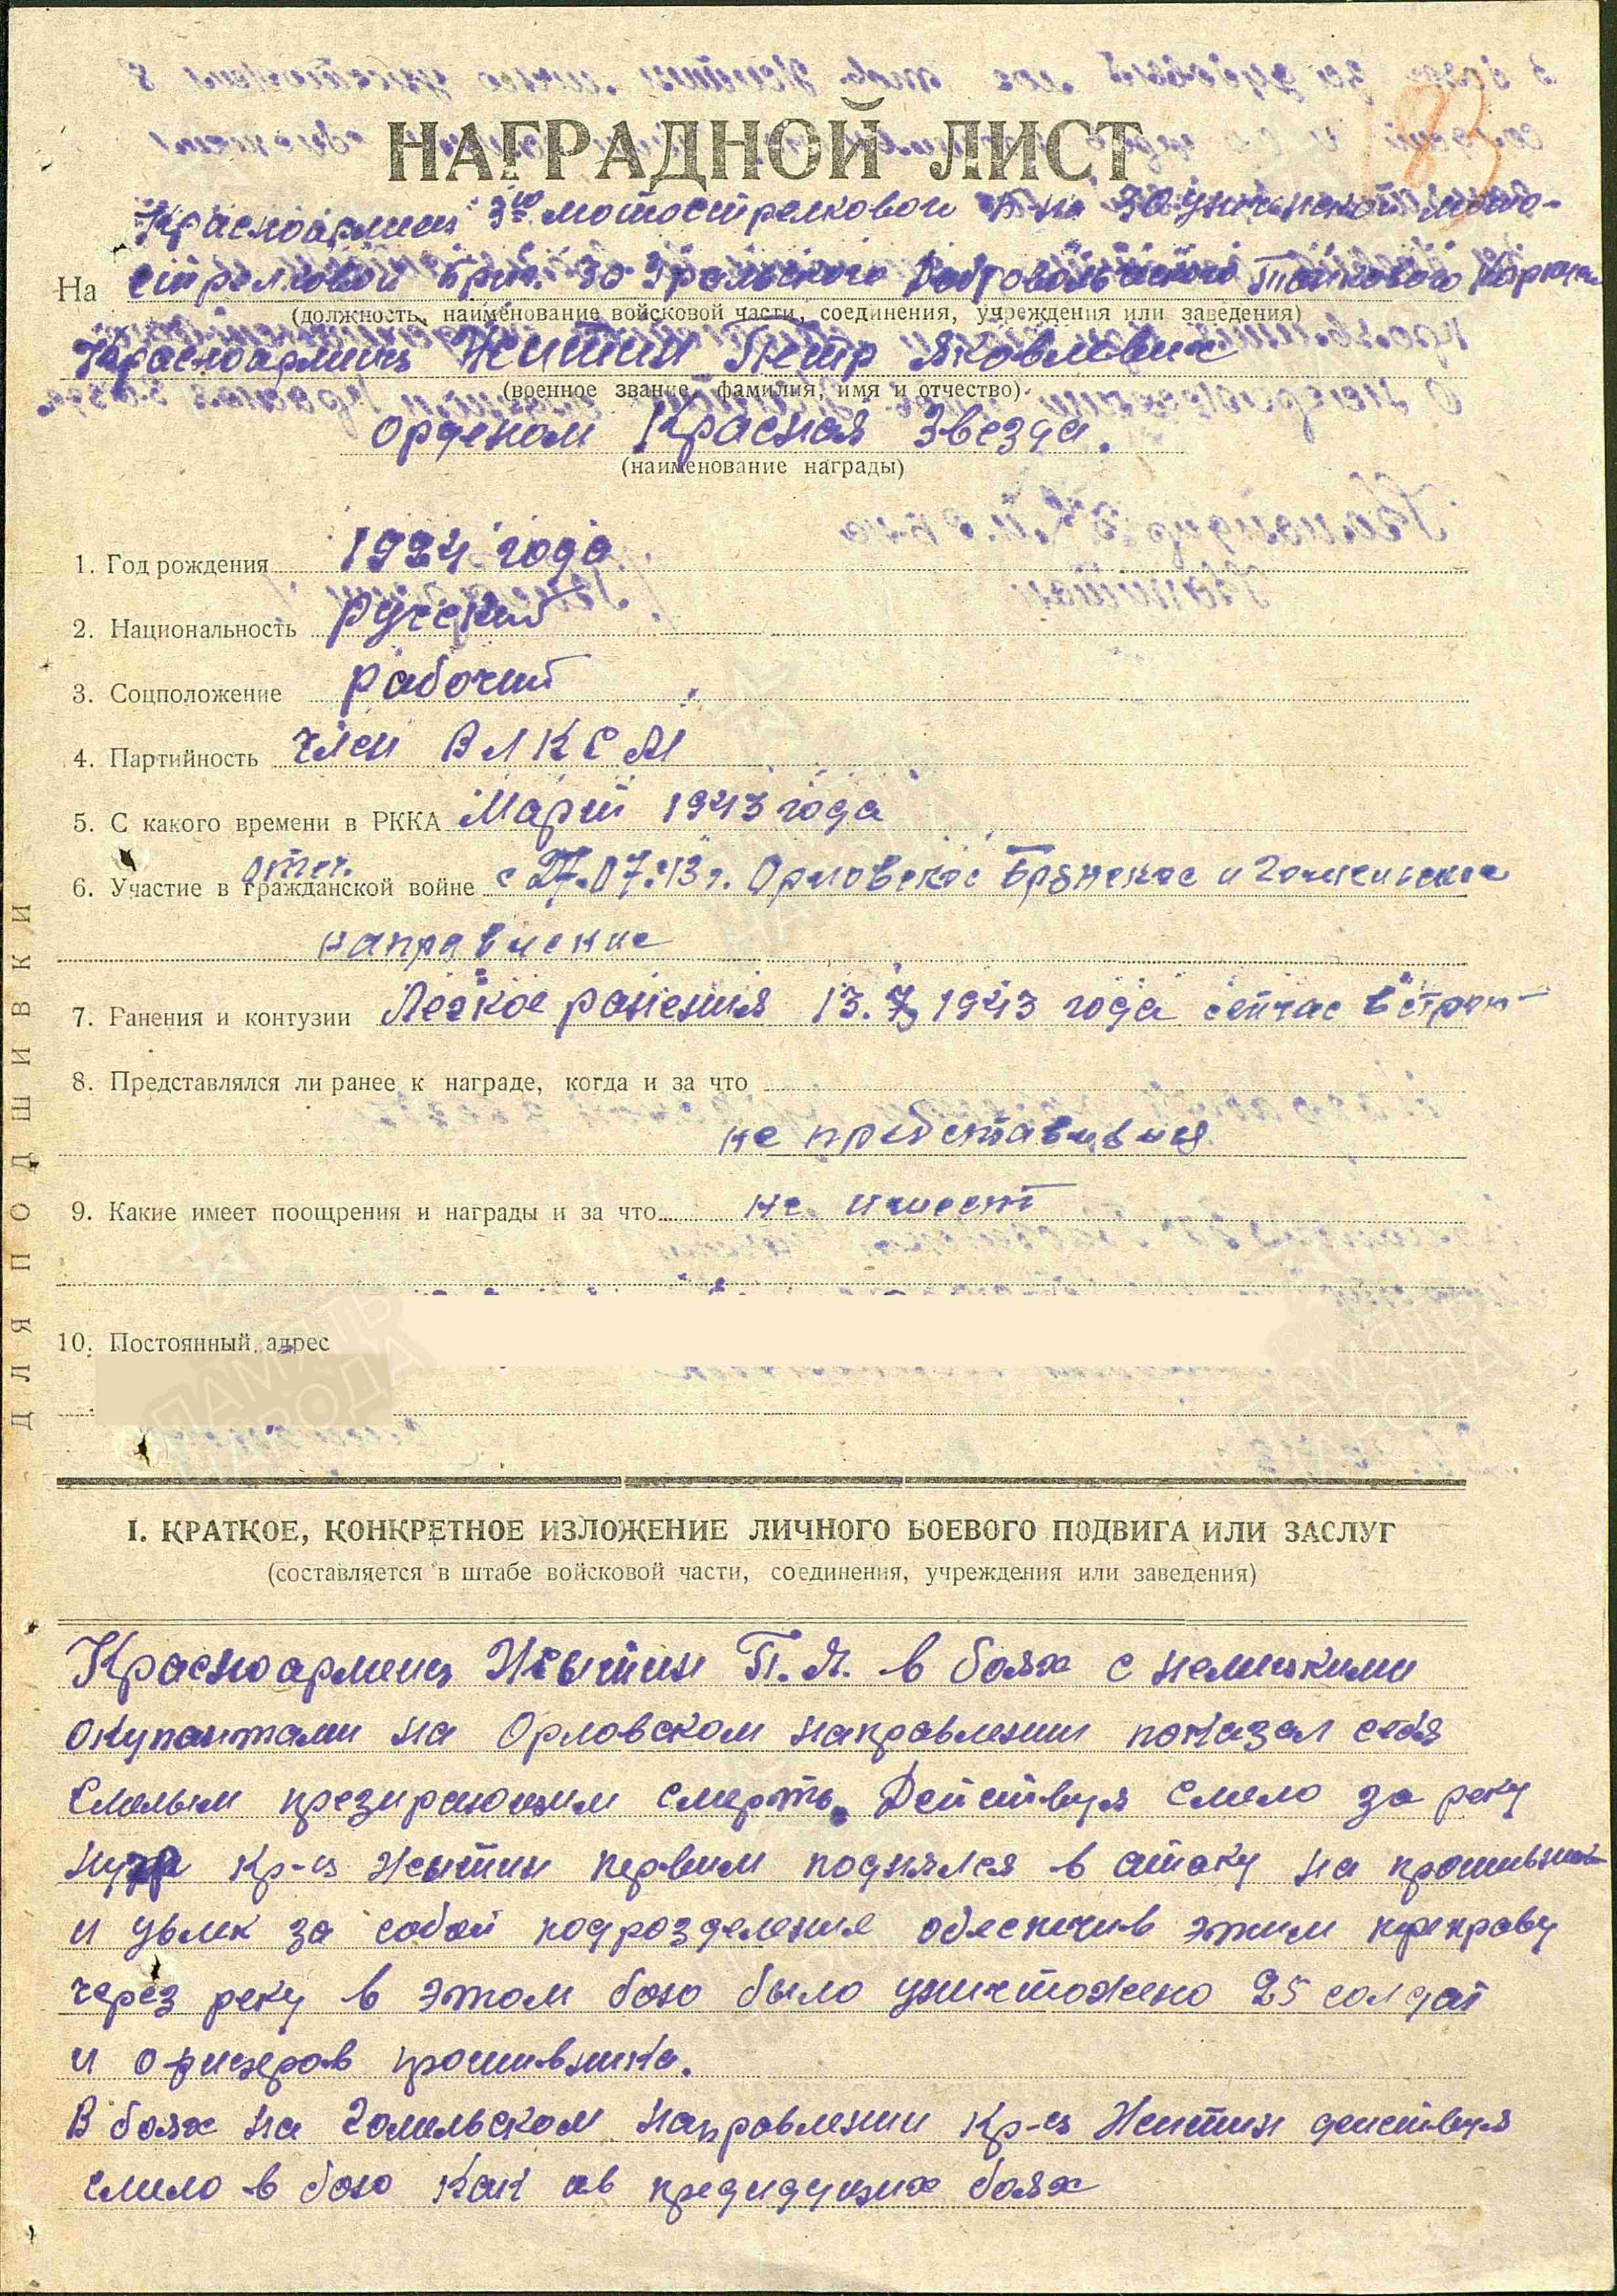 НАГРАДНОЙ ЛИСТ
Красноармеец 3го мотострелковой б-на 30 Унечьнской мото-
На стрелковой бриг. 30 Уральского Добровольческого Танкового Корпуса
(должность, наименование войсковой части, соединения, учреждения или заведения)
Красноармеец Житин Петр Яковлевич
(военное звание, фамилия, имя и отчество)
орденом Красная Звезда.
(наименование награды)
1. Год рождения 1924 года
2. Национальность русский
3. Соцположение рабочий
4. Партийность член ВЛКСМ
5. С какого времени в РККА Март 1943 года
отеч.
6. Участие в гражданской войне с 27.07.43 г. Орловское Брянское и Гомельское
направление
7. Ранения и контузии Легкое ранения 13.7, 1943 года сейчас в строю
8. Представлялся ли ранее к награде, когда и за что
не представлялся
9. Какие имеет поощрения и награды и за что не имеет
10. Постоянный адрес
ДЛЯ ПОДШИВКИ
I. КРАТКОЕ, КОНКРЕТНОЕ ИЗЛОЖЕНИЕ ЛИЧНОГО БОЕВОГО ПОДВИГА ИЛИ ЗАСЛУГ
(составляется в штабе войсковой части, соединения, учреждения или заведения)
Красноармеец Житин П.Я. в боях с немецкими
окупантами на Орловском направлении показал себя
смелым презирающим смерть. Действуя смело за реку
кр-ец Житин первым поднялся в атаку на противника
и увлек за собой подразделения обеспечив этим переправу
через реку в этом бою было уничтожено 25 солдат
и офицеров противника.
В боях на Гомельском направлении кр-ец Житин действуя
смело в бою как и в предидущих боях
ПАМЯТЬ НАРОДА